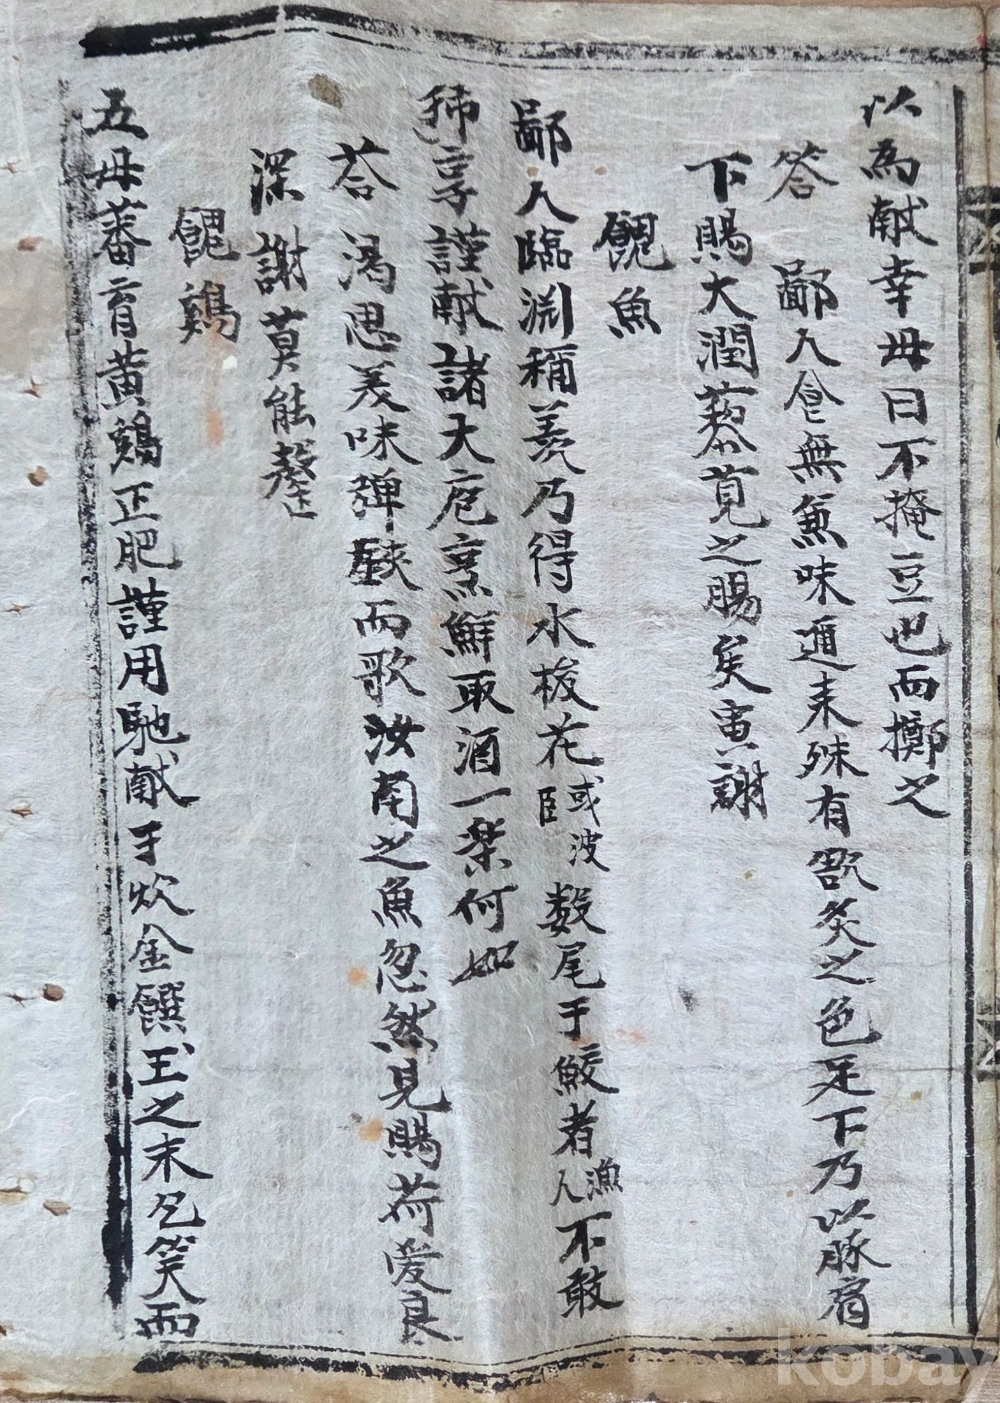 以為献幸毋曰不掩豆也而擲之
答 鄙人食無魚味邇来殊有歠炙之色足下乃以豚肩
下賜大潤藜莧之腸矣寅謝
餽魚
鄙人臨淵稱羨乃得水梭花 或臣波 数尾于鮫者 漁人 不敢
独享謹献諸大庖烹鮮取酒一楽何如
荅 渴思美味弹鋏而歌汝南之魚忽然見賜荷愛良
深謝莫能罄
餽鷄
五母蕃育黄鷄正肥謹用馳献于炊金饌玉之末乞笑而
kobay